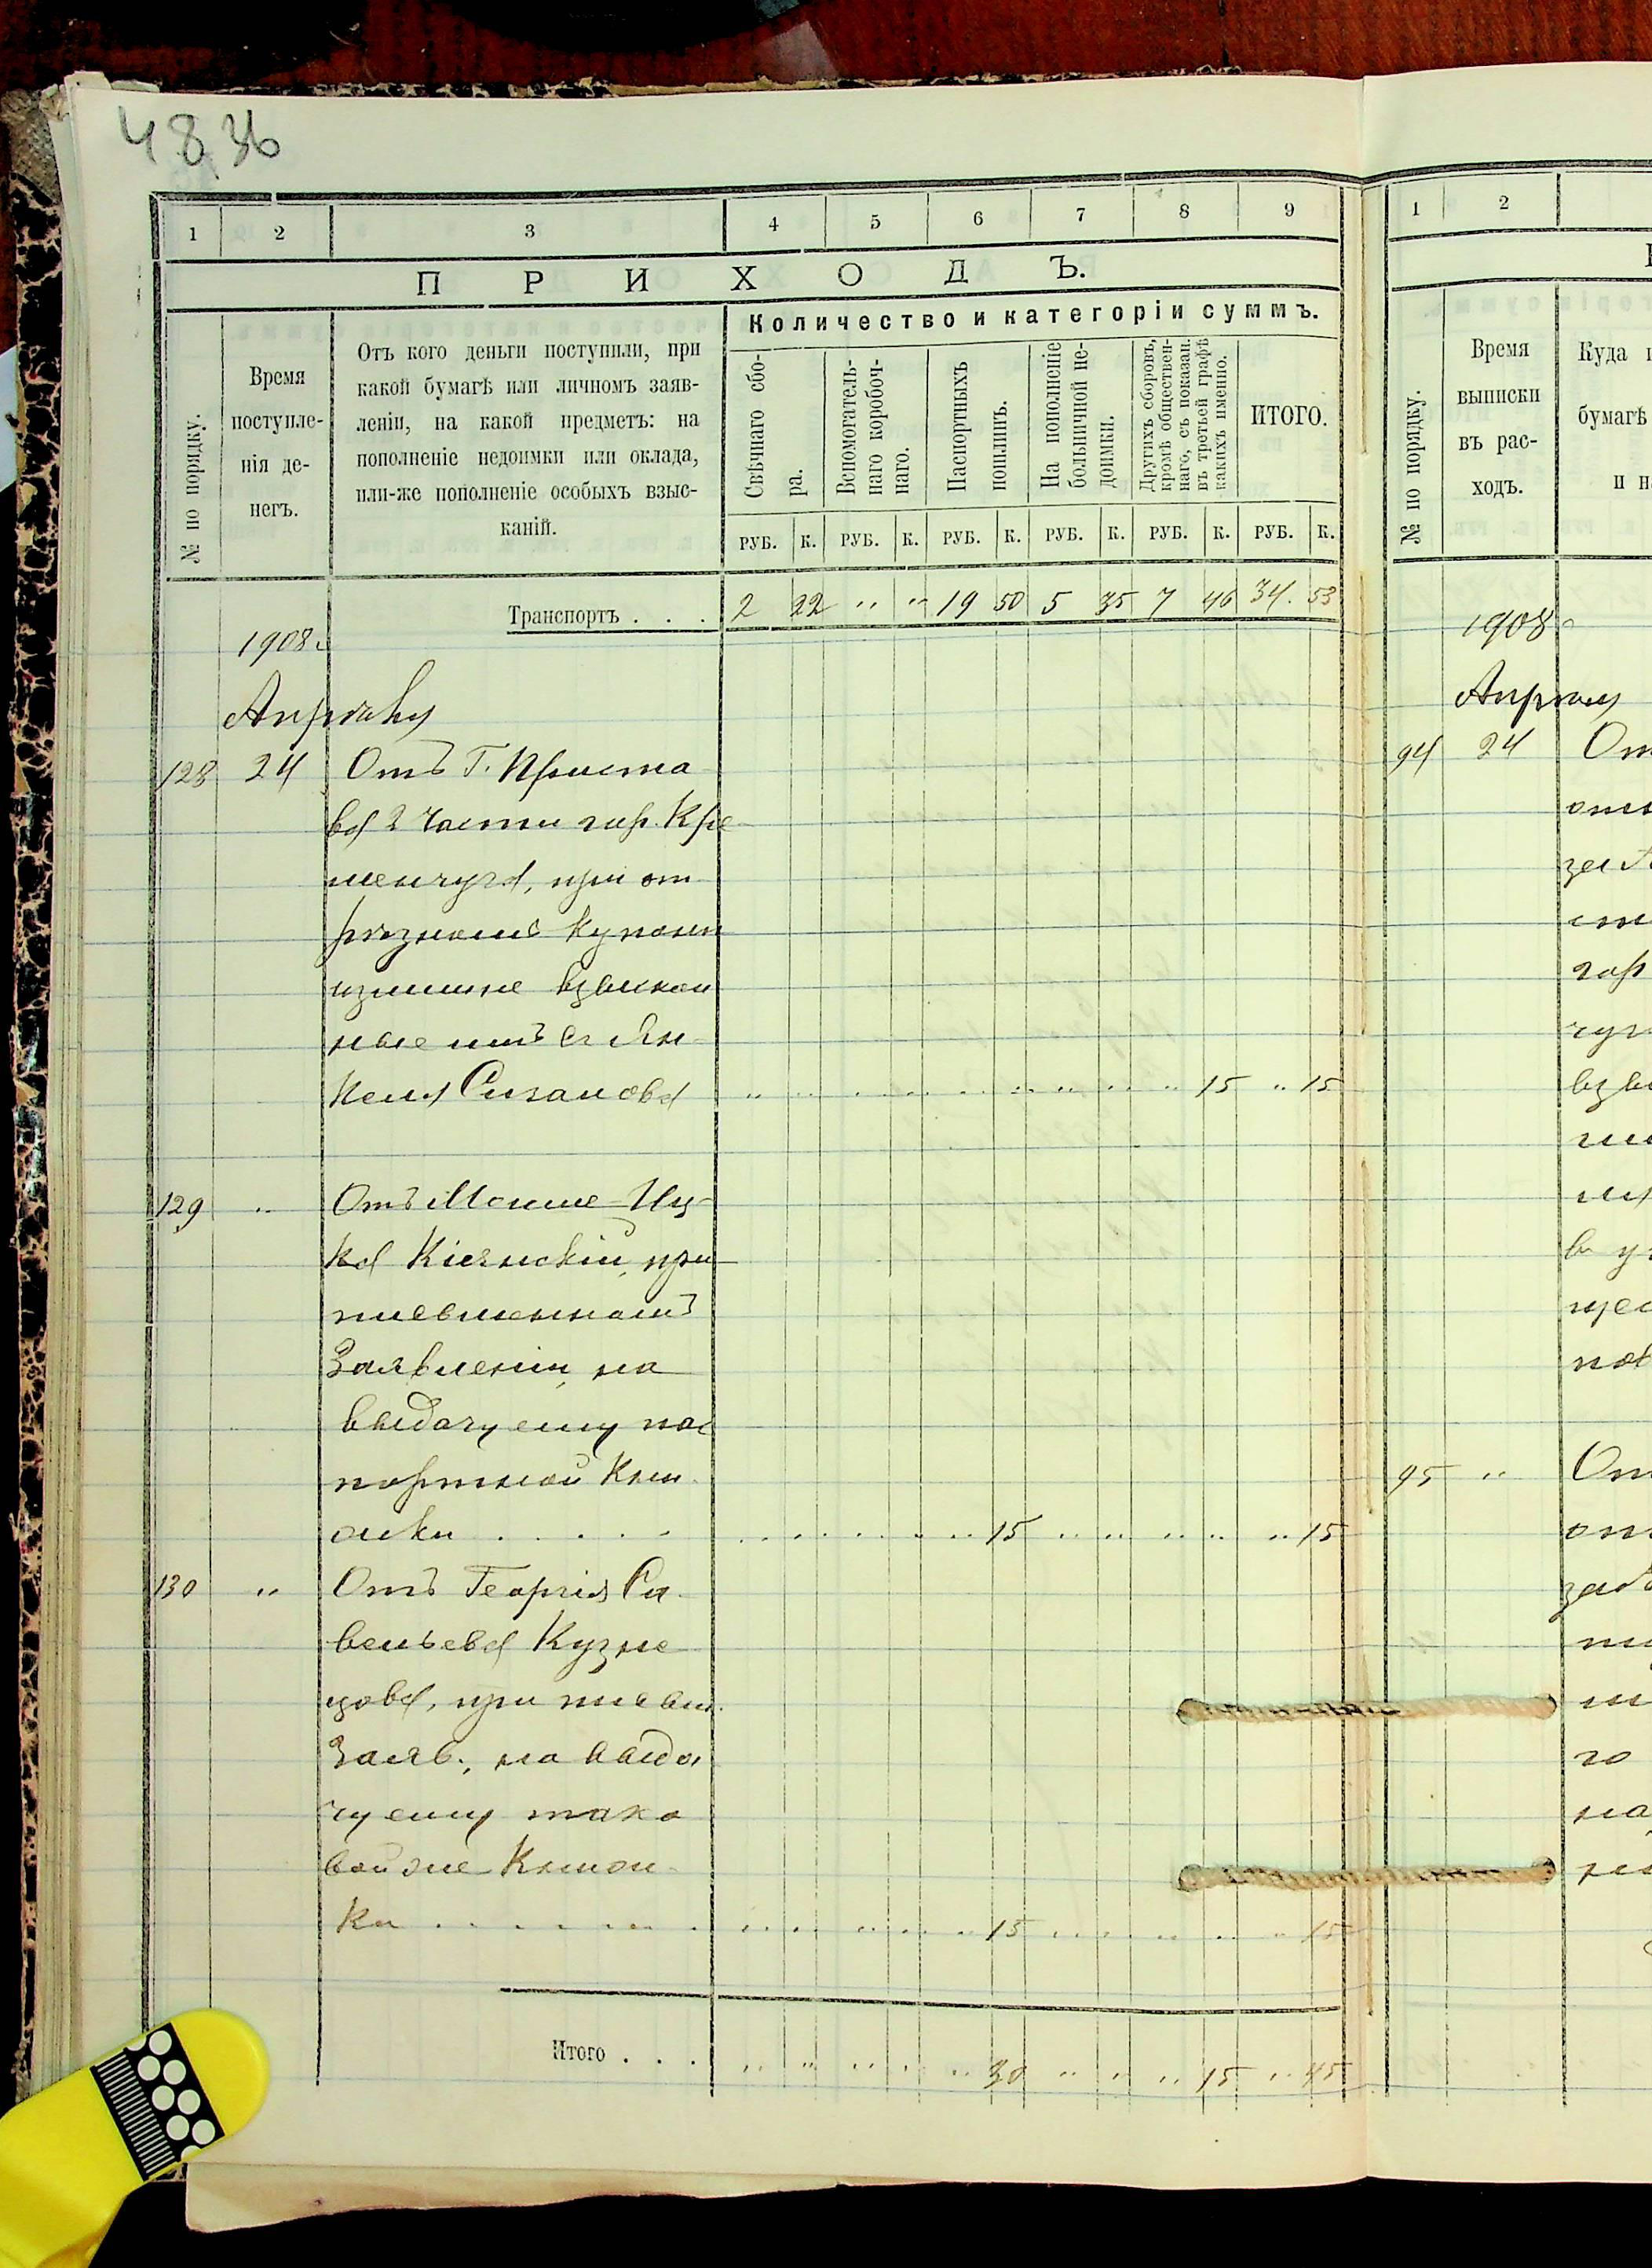 4836
1 2 3 4 5 6 7 8 9
ПРИХОДЪ.
№ по порядку.
Время
поступле-
нія де-
негъ.
Отъ кого деньги поступили, при
какой бумагѣ или личномъ заяв-
леніи, на какой предметъ: на
пополненіе недоимки или оклада,
или-же пополненіе особыхъ взыс-
каній.
Количество и категоріи суммъ.
Свѣчнаго сбо-
ра.
Вспомогатель-
наго коробоч-
наго.
Паспортныхъ
пошлинъ.
На пополненіе
больничной не-
доимки.
Другихъ сборовъ,
кромѣ обществен-
наго, съ показан.
въ третьей графѣ
какихъ именно.
ИТОГО.
РУБ. К. РУБ. К. РУБ. К. РУБ. К. РУБ. К. РУБ. К.
Транспортъ . . . 2 22 " " 19 50 5 35 7 46 34. 53
1908 г.
Апрѣль
128 24 Отъ Г. Приста
ва 2 Части гор. Кре
менчуга, при от
рѣзномъ купонѣ
излишне взыскан
ные имъ съ Ян-
келя Сиганова " 15 " 15
129 " Отъ Мошие-Иц-
ка Кіевскій, при
писменномъ
Заявленіи, на
выдачу ему пас
портной книж
ки . . . . . 15 " 15
130 " Отъ Георгія Са
вельева Кузне
цова, при писвм.
Заяв., на выда
чу ему тако
вой же Книж
ки . . . . . 15 15
Итого . . . " " " " " 30 " " " 15 " 45
1 2
№ по порядку.
Время
выписки
въ рас-
ходъ.
Куда
бумагѣ
и
1908 г.
Апрѣль
94 24
гор
95 "